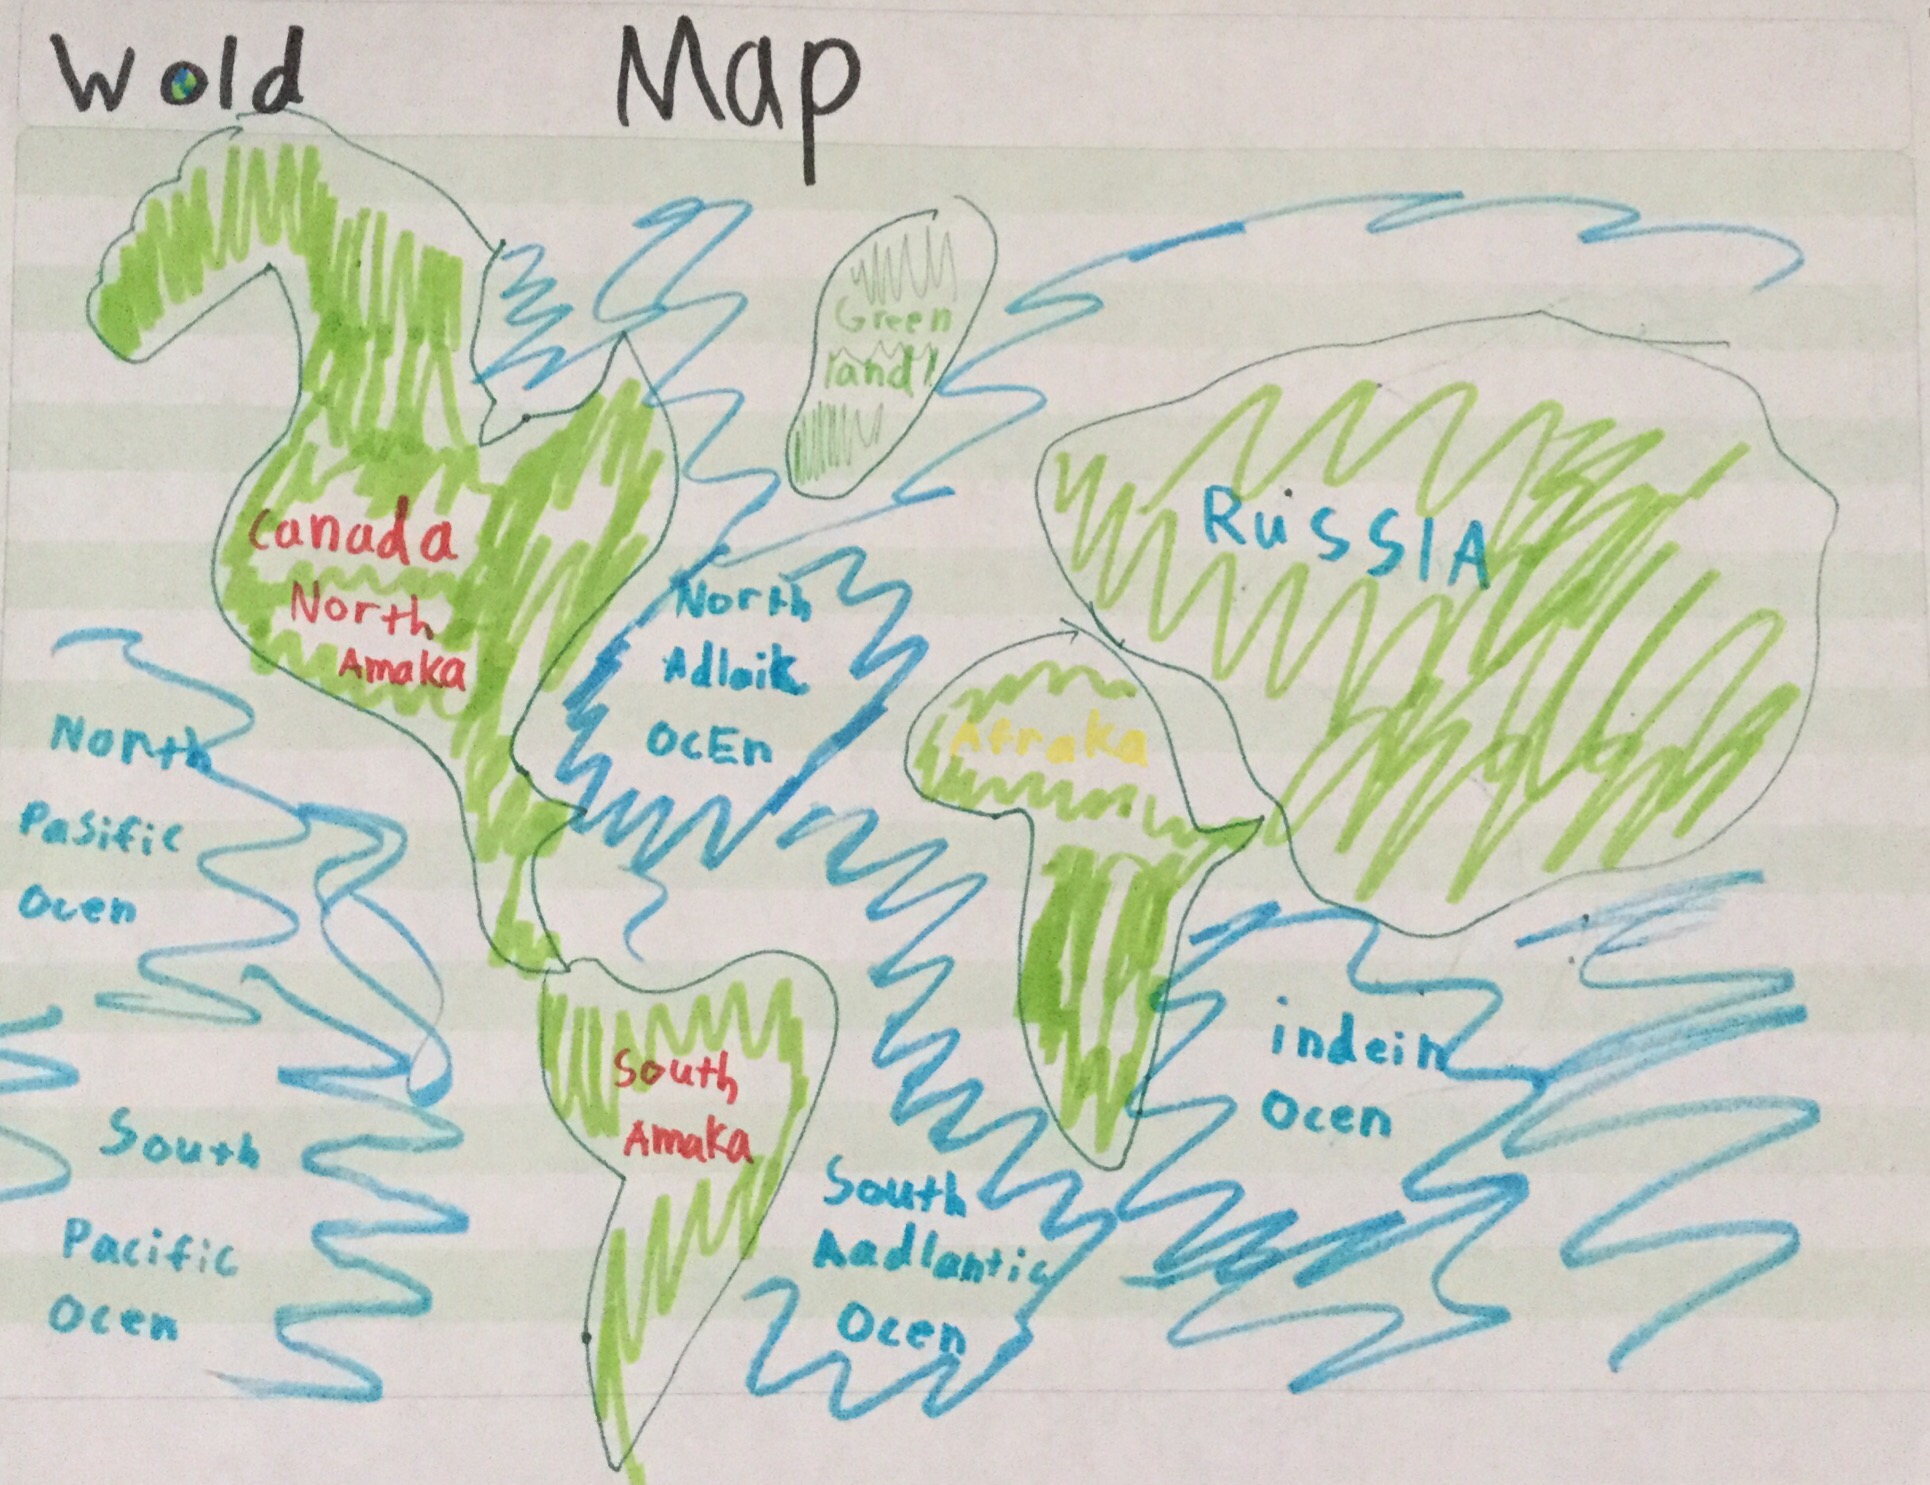 Wold Map
Green
land
Canada
North
Amaka
RUSSIA
North
Adlaik
OcEn
Afraka
North
Pasific
Ocen
South
Amaka
indein
Ocen
South
Pacific
Ocen
South
Aadlantic
Ocen